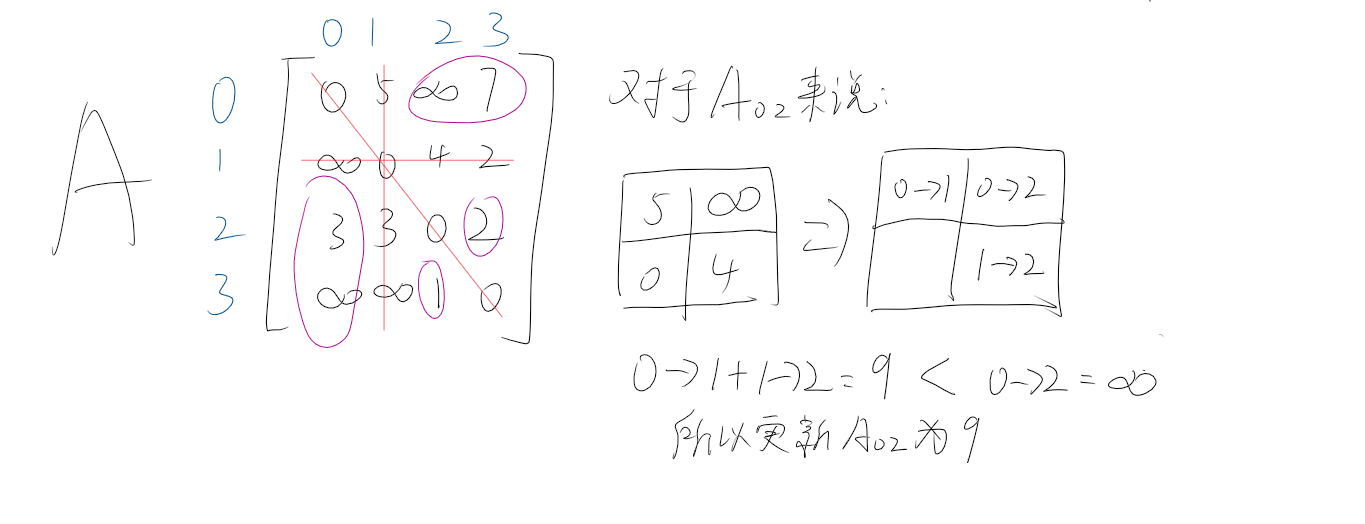 0 1 2 3
A
0 0 5 ∞ 7
1 ∞ 0 4 2
2 3 3 0 2
3 ∞ ∞ 1 0
对于A02来说:
5 ∞
0 4
=>
0→1 0→2
1→2
0→1+1→2=9 < 0→2=∞
所以更新A02为9